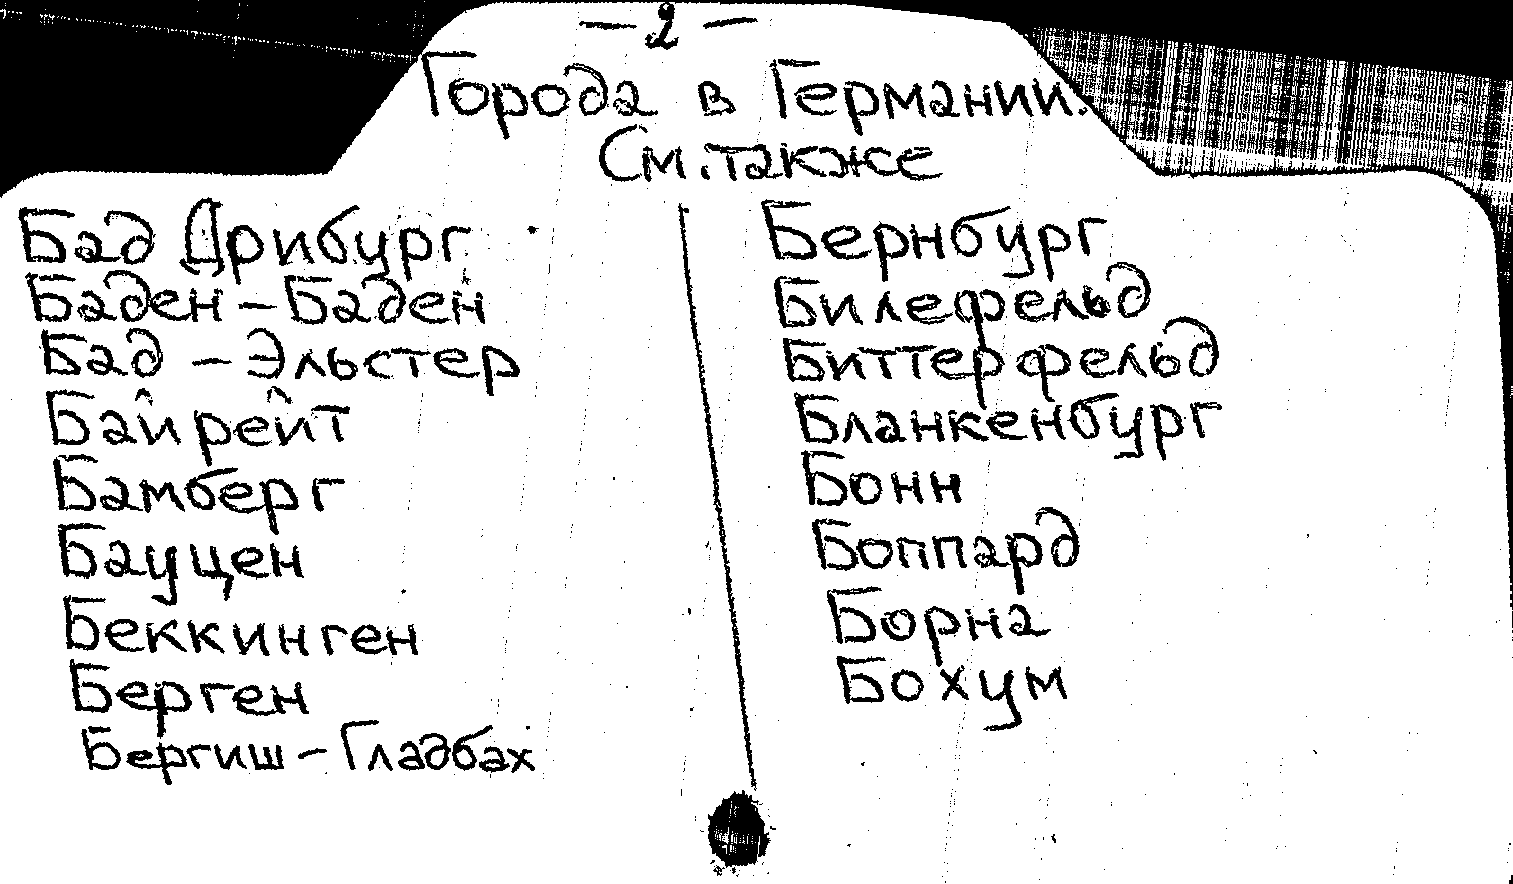 — 2 —
Города в Германии.
См. также
Бад Дрибург
Баден - Баден
Бад - Эльстер
Байрейт
Бамберг
Бауцен
Беккинген
Берген
Бергиш - Гладбах
Бернбург
Билефельд
Биттерфельд
Бланкенбург
Бонн
Боппард
Борна
Бохум